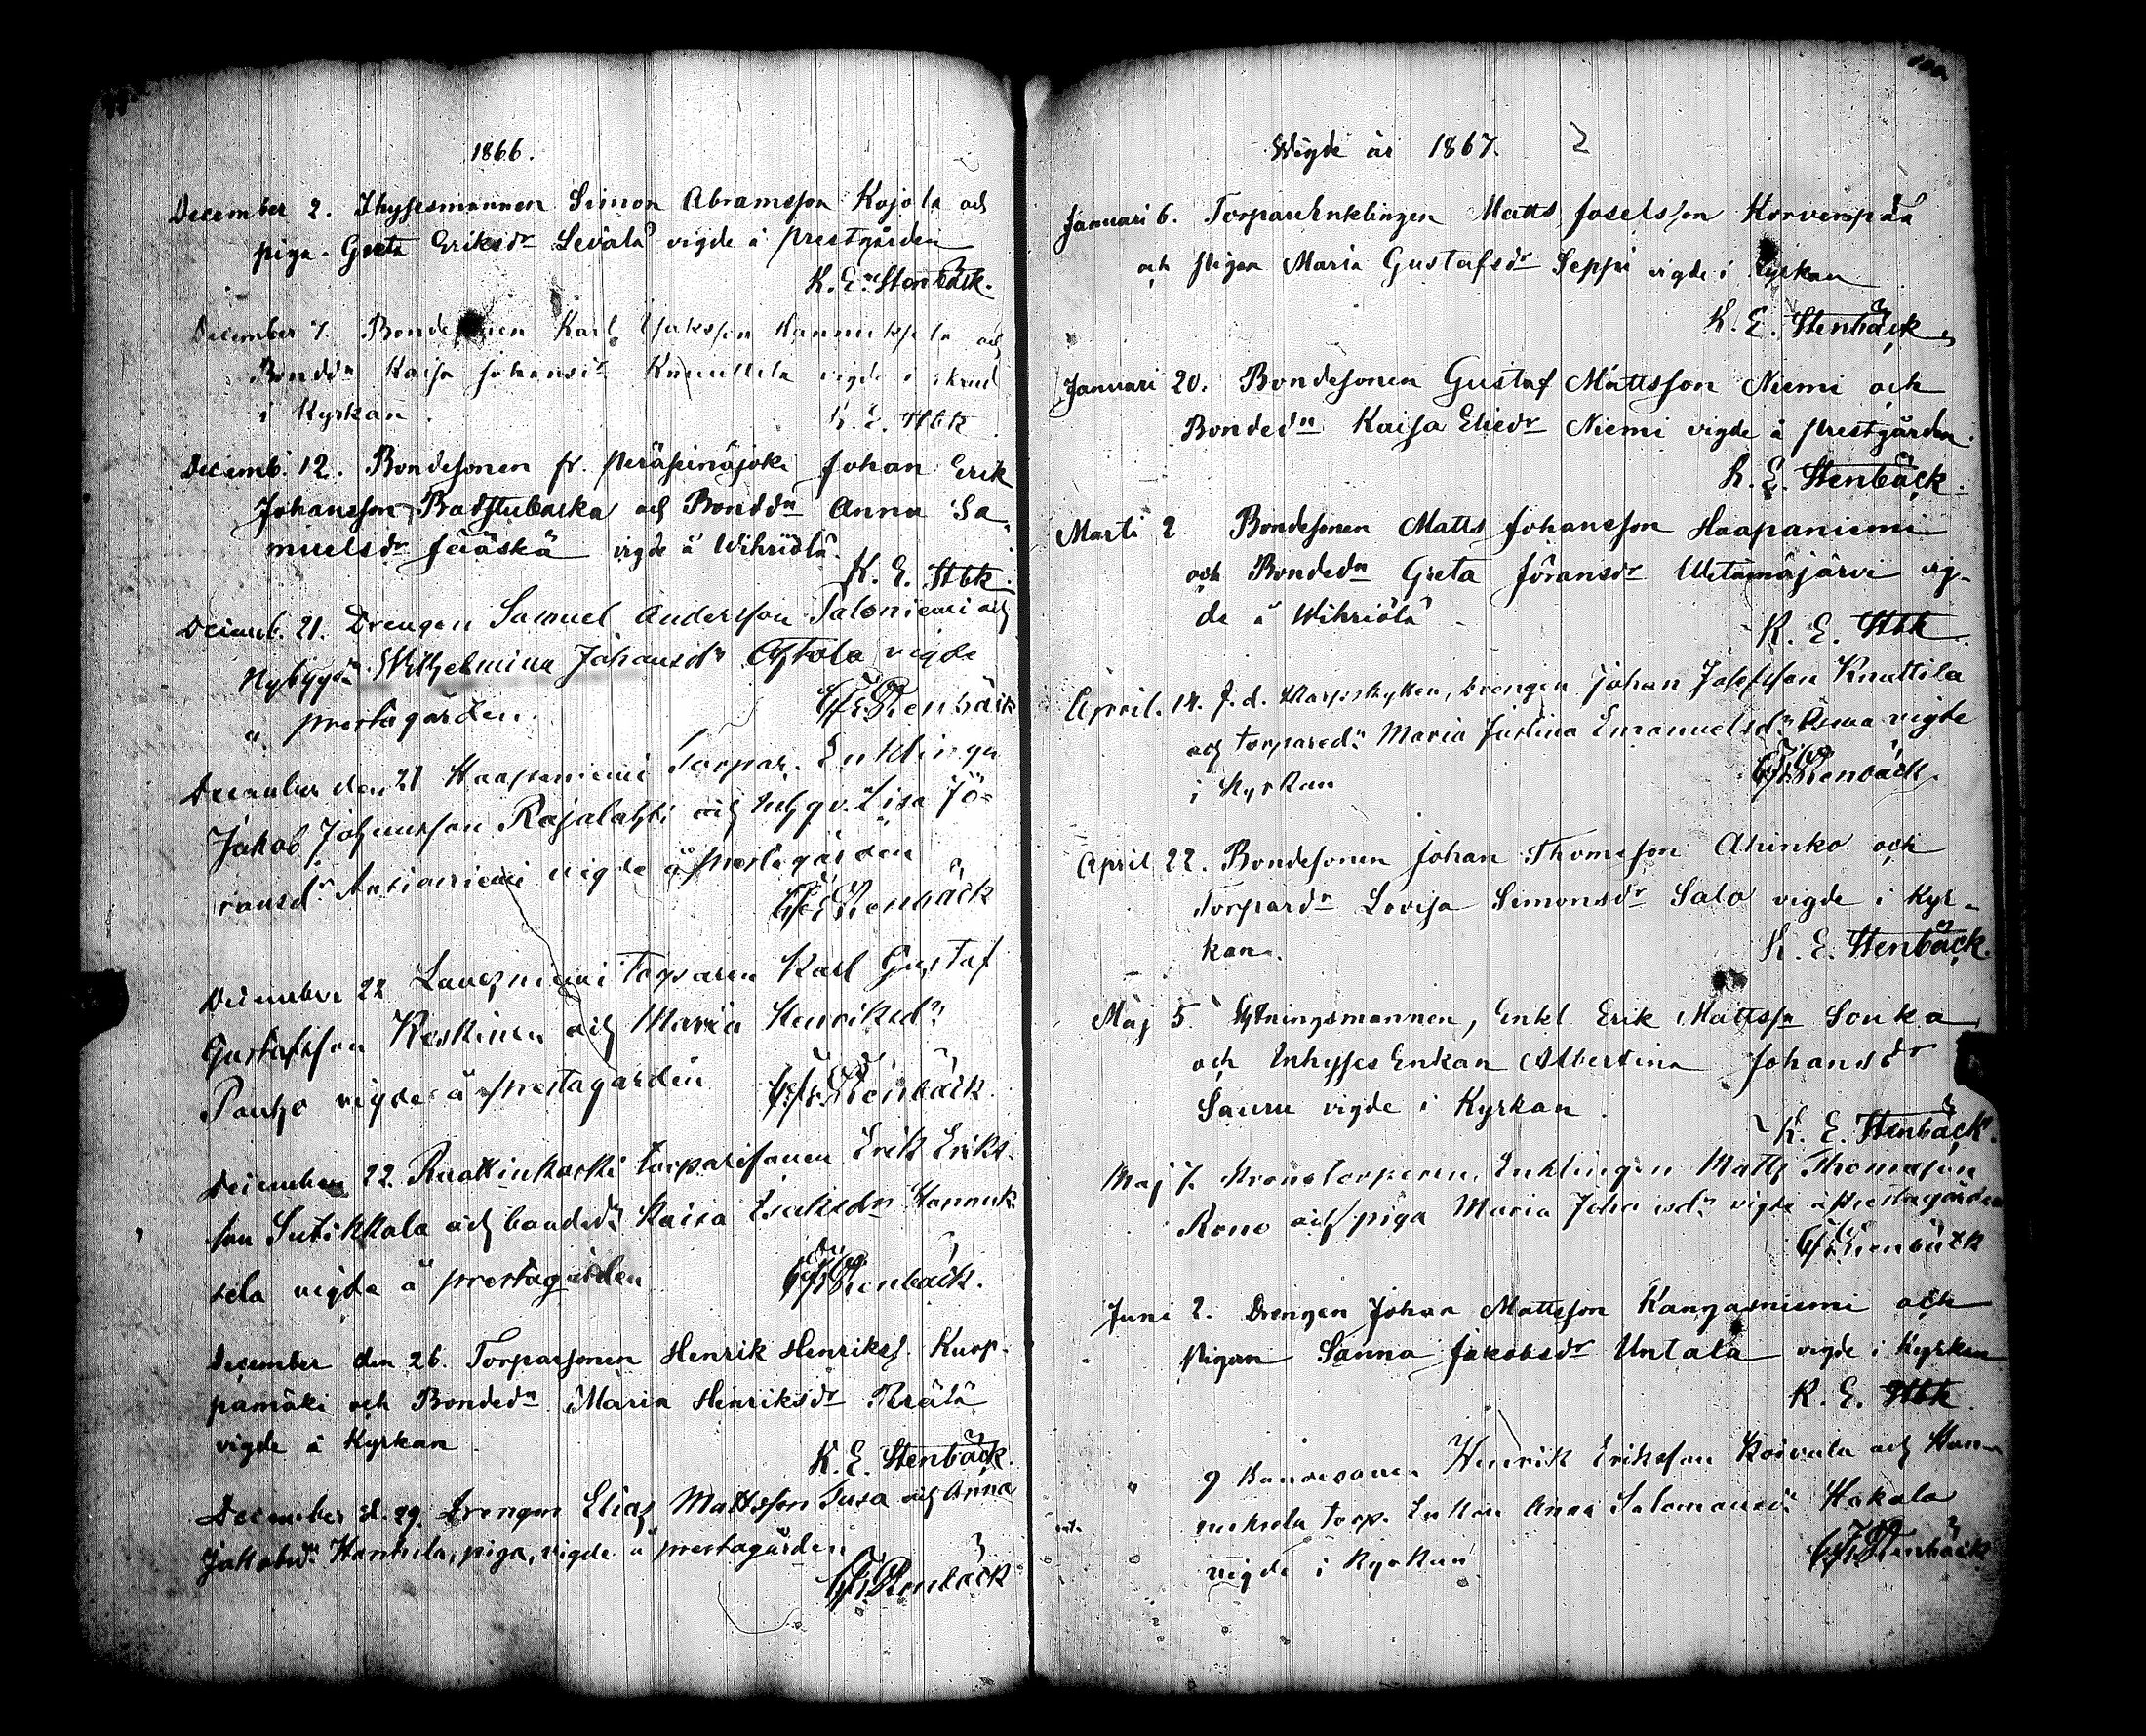 1866.
December 2. Inhysesmannen Simon Abramsson Kojola och
piga Greta Eriksdr Levälä vigde å prestgården
K. E. Stenbäck.
December 7. Bondesonen Karl Isaksson Hannuksela och
Bonded:n Kaisa Johansdr Knuuttila vigde i skrud
i Kyrkan.
K. E. Stbk
Decemb. 12. Bondesonen fr. Peräseinäjoki Johan Erik
Johansson Badstubacka och Bondd:n Anna Sa-
muelsdr Jääskä vigde å Wihriälä.
K. E. Stbk.
Decemb. 21. Drengen Samuel Andersson Saloniemi och
Nybyggd:n Wilhelmina Johansdr Ahtola vigde
å prestagården.
Stenbäck
December den 21 Haapaniemi Torpar. Enklingen
Jakob Johansson Rajalahti och Inhyv. Lisa Jö-
ransdr Antianiemi vigde å prestagården
Stenbäck
December 22 Torparen Karl Gustaf
Gustafsson Keskinen och Maria Henriksdr
Pouho vigde å prestagården
Stenbäck.
December 22 Ruottinkoski torparesonen Erik Eriks-
son Sutikkala och bonded:n Kaisa Isaksdr Hannuk-
sela vigde å prestagården
Stenbäck.
December den 26. Torparsonen Henrik Henrikss. Kurp-
pamäki och Bonded:n Maria Henriksdr Perälä
vigde i Kyrkan
K. E. Stenbäck.
December d. 29. Drengen Elias Mattsson Tusa och Anna
Jakobsdr Hantula, piga, vigde å prestagården
Stenbäck
Wigde år 1867. 2
Januari 6. TorpareEnklingen Matts Josefsson Korvenpää
och Pigan Maria Gustafsdr Seppi vigde i Kyrkan
K. E. Stenbäck
Januari 20. Bondesonen Gustaf Mattsson Niemi och
Bonded:n Kaisa Eliedr Niemi vigde å prestgården.
K. E. Stenbäck.
Marti 2 Bondesonen Matts Johansson Haapaniemi
och Bonded:n Greta Jöransdr Wetämäjärvi vig-
de å Wihriälä
K. E. Stbk.
April. 14. f. d. Skarpskytten, drengen Johan Josefsson Knuttila
och torpared:n Maria Justina Emanuelsdr vigde
i Kyrkan
Stenbäck.
April 22. Bondesonen Johan Thomasson Ahinko och
Torpard:n Lovisa Simonsdr Salo vigde i Kyr-
kan.
K. E. Stenbäck.
Maj 5. Hytningsmannen, Enkl Erik Mattss:n Souka
och InhysesEnkan Albertina Johansdr
Sauru vigde i Kyrkan.
K. E. Stenbäck.
Maj 7. Kronotorparen, Enklingen Matts Thomasson
Rono och piga Maria Johansdr vigde å Prestagården
Stenbäck
Juni 2. Drengen Johan Mattsson Kangasniemi och
Pigan Sanna Jakobsdr Untala vigde i Kyrkan
K. E. Stbk.
" 9 Bondesonen Henrik Eriksson Koivula och Han-
nuksela torp. Enkan Anna Salomonsdr Hakala
vigde i Kyrkan
Stenbäck